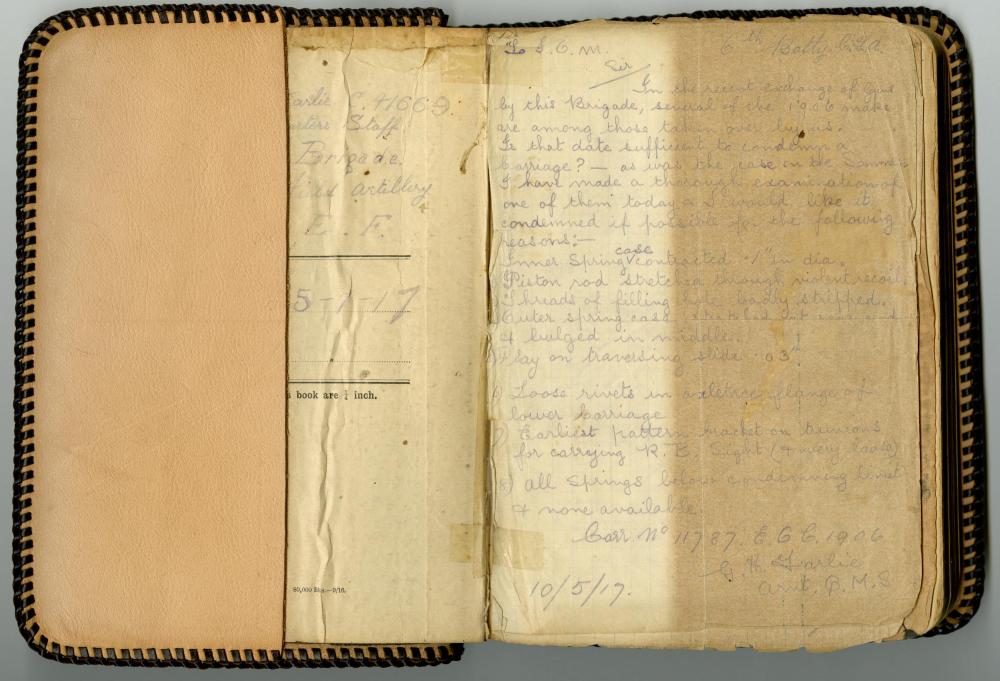 arlie C. 4166
arters Staff
Brigade.
artillery
E. F.
5-1-17
book are ¼ inch.
80,000 Bks.—9/16.
To I.O.M.
6th Batty
Sir
In the recent exchange of Guns
by this Brigade, several of the 1906 make
are among those taken over by us.
Is that date sufficient to condemn a
Carriage? — as was the case on the Somme
I have made a thorough examination of
one of them today & I would like it
condemned if possible for the following
reasons:—
Inner Spring case contracted .1" in dia.
Piston rod stretched through violent recoil.
Threads of filling hole badly stripped.
Outer spring case stretched at
& bulged in middle.
Play on traversing slide .03"
6) Loose rivets in axletree flange of
lower carriage
7) Earliest pattern bracket on
for carrying R. B. Sight (& very loose)
8) all Springs below condemning limit
& none available.
Carr. No 11787. E.O.C. 1906
G H. Garlic
Q.M.S
10/5/17.